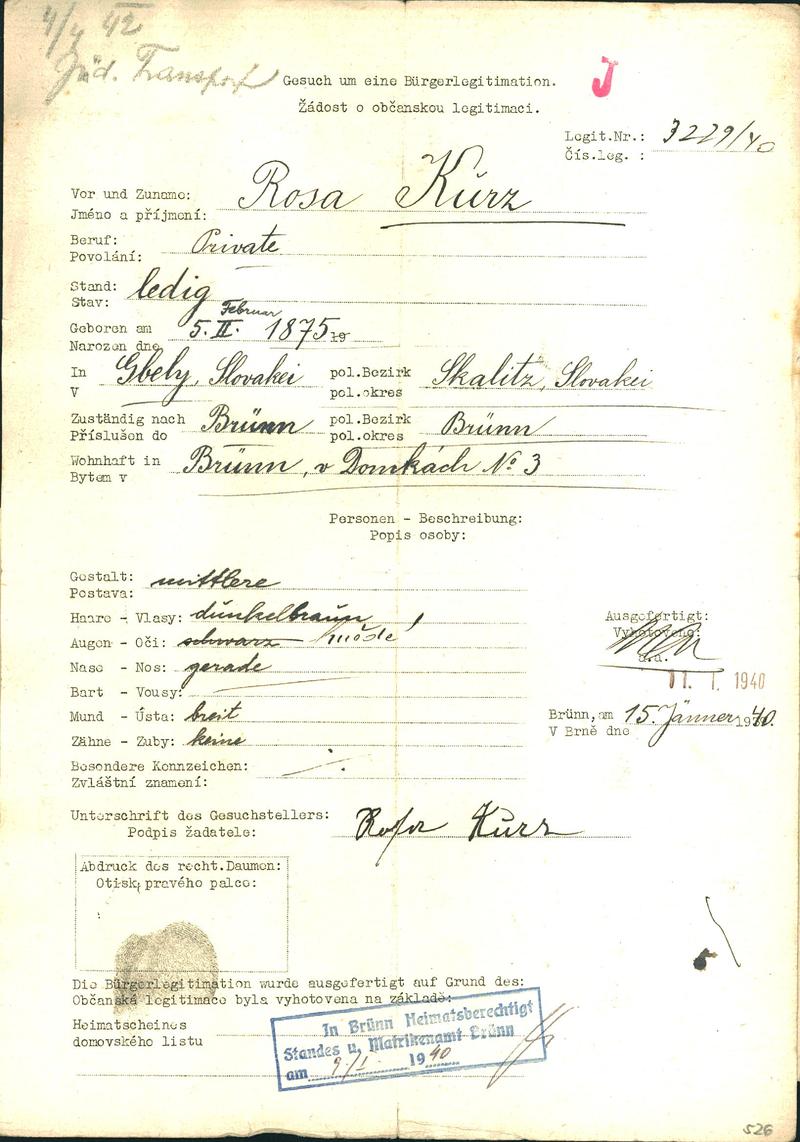 4/4 42
Jüd. Transport
J
Gesuch um eine Bürgerlegitimation.
Žádost o občanskou legitimaci.
Legit.Nr.: 3229/40
Čís.leg. :
Vor und Zuname: Rosa Kurz
Jméno a příjmení:
Beruf: Private
Povolání:
Stand: ledig
Stav:
Februar
Geboren am 5. II. 1875 19
Narozen dne
In Gbely, Slovakei pol.Bezirk Skalitz, Slovakei
V pol.okres
Zuständig nach Brünn pol.Bezirk Brünn
Příslušen do pol.okres
Wohnhaft in Brünn, v Domkách No 3
Bytem v
Personen - Beschreibung:
Popis osoby:
Gestalt: mittlere
Postava:
Haare - Vlasy: dunkelbraun
Augen - Oči: schwarz hnědé
Nase - Nos: gerade
Bart - Vousy:
Mund - Ústa: breit
Zähne - Zuby: keine
Besondere Kennzeichen:
Zvláštní znamení:
Ausgefertigt:
Vyhotoveno:
11. 1. 1940
Brünn, am 15. Jänner 1940.
V Brně dne
Unterschrift des Gesuchstellers: Rosa Kurz
Podpis žadatele:
Abdruck des recht.Daumen:
Otisk pravého palce:
Die Bürgerlegitimation wurde ausgefertigt auf Grund des:
Občanská legitimace byla vyhotovena na základě:
Heimatscheines
domovského listu
In Brünn Heimatsberechtigt
Standes u. Matrikenamt Brünn
am 9/I 1940
526